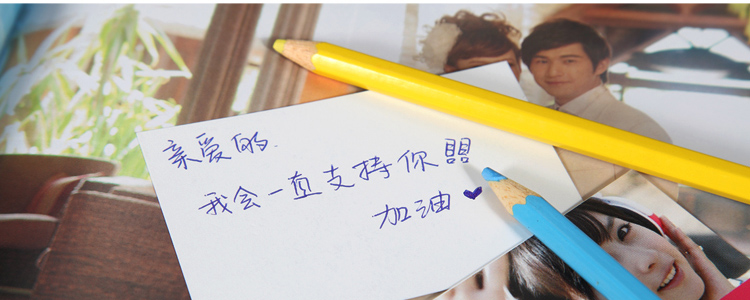 亲爱的.
我会一直支持你
加油